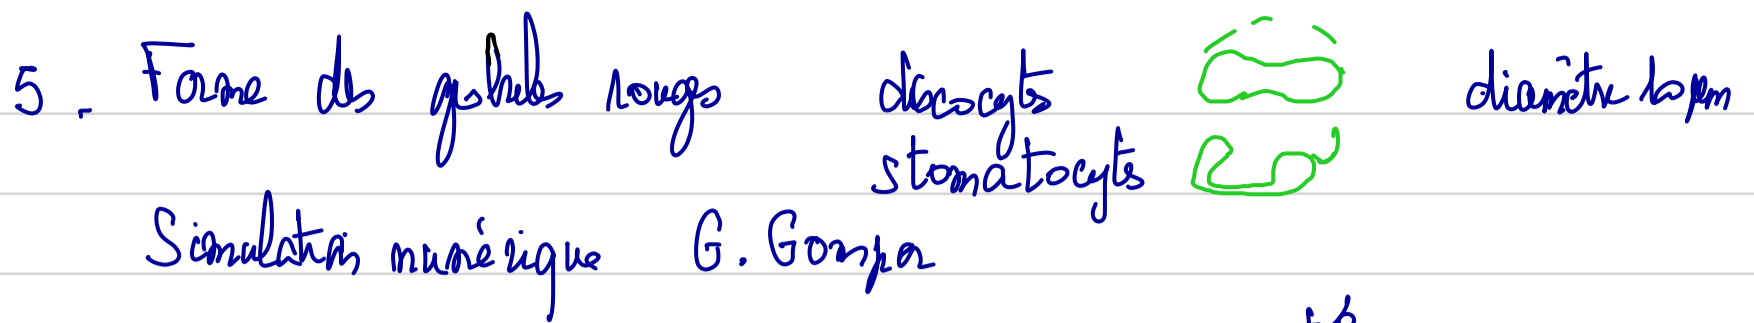 5. Forme des globules rouges discocytes diamètre 10 µm
stomatocytes
Simulation numérique G. Gomper